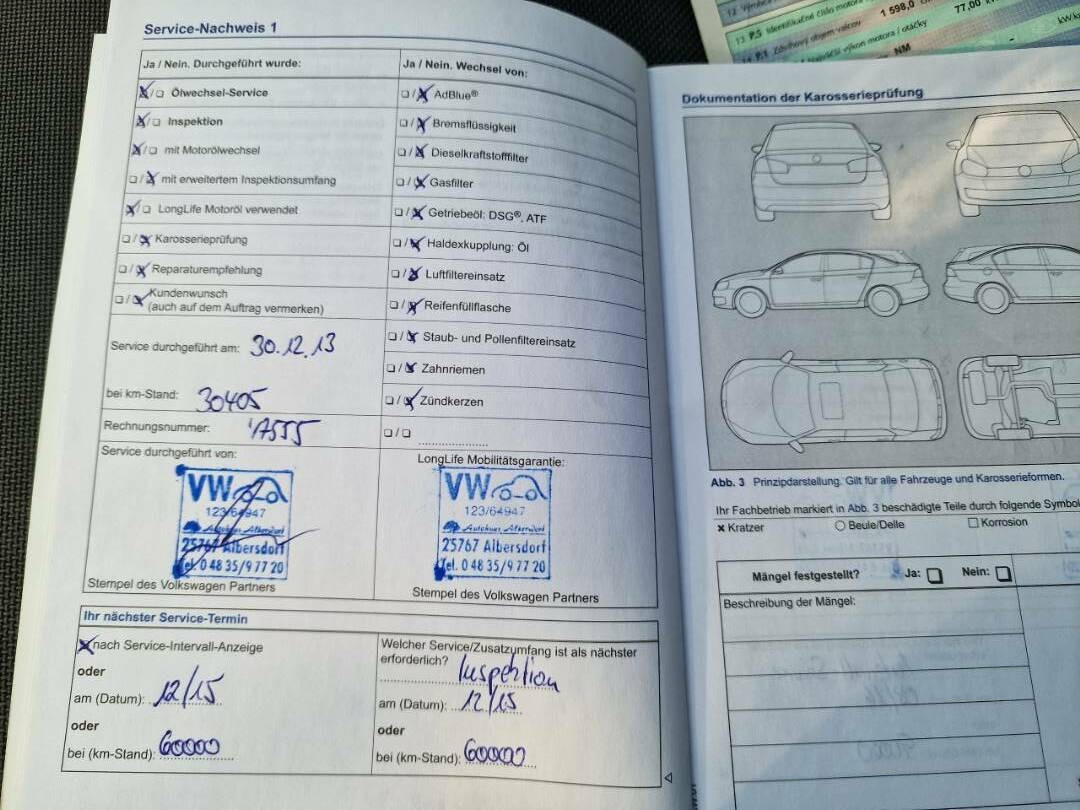 Service-Nachweis 1
Ja / Nein. Durchgeführt wurde:
Ölwechsel-Service
Inspektion
mit Motorölwechsel
mit erweitertem Inspektionsumfang
LongLife Motoröl verwendet
Karosserieprüfung
Reparaturempfehlung
Kundenwunsch
(auch auf dem Auftrag vermerken)
Service durchgeführt am: 30.12.13
bei km-Stand: 30405
Rechnungsnummer:
Service durchgeführt von:
VW
123/64947
25767 Albersdorf
Tel. 0 48 35/9 77 20
Stempel des Volkswagen Partners
Ja / Nein. Wechsel von:
AdBlue®
Bremsflüssigkeit
Dieselkraftstofffilter
Gasfilter
Getriebeöl: DSG®, ATF
Haldexkupplung: Öl
Luftfiltereinsatz
Reifenfüllflasche
Staub- und Pollenfiltereinsatz
Zahnriemen
Zündkerzen
LongLife Mobilitätsgarantie:
VW
123/64947
Autohaus Albersdorf
25767 Albersdorf
Tel. 0 48 35/9 77 20
Stempel des Volkswagen Partners
Ihr nächster Service-Termin
nach Service-Intervall-Anzeige
oder
am (Datum): 12/15
oder
bei (km-Stand): 60000
Welcher Service/Zusatzumfang ist als nächster
erforderlich? Inspektion
am (Datum): 12/15
oder
bei (km-Stand): 60000
Dokumentation der Karosserieprüfung
Abb. 3 Prinzipdarstellung. Gilt für alle Fahrzeuge und Karosserieformen.
Ihr Fachbetrieb markiert in Abb. 3 beschädigte Teile durch folgende Symbol
Kratzer
Beule/Delle
Korrosion
Mängel festgestellt? Ja: Nein:
Beschreibung der Mängel:
13 P.5 Identifikačné číslo motora
14 P.1 Zdvihový objem valcov 1 598,0
výkon motora / otáčky 77,00
NM